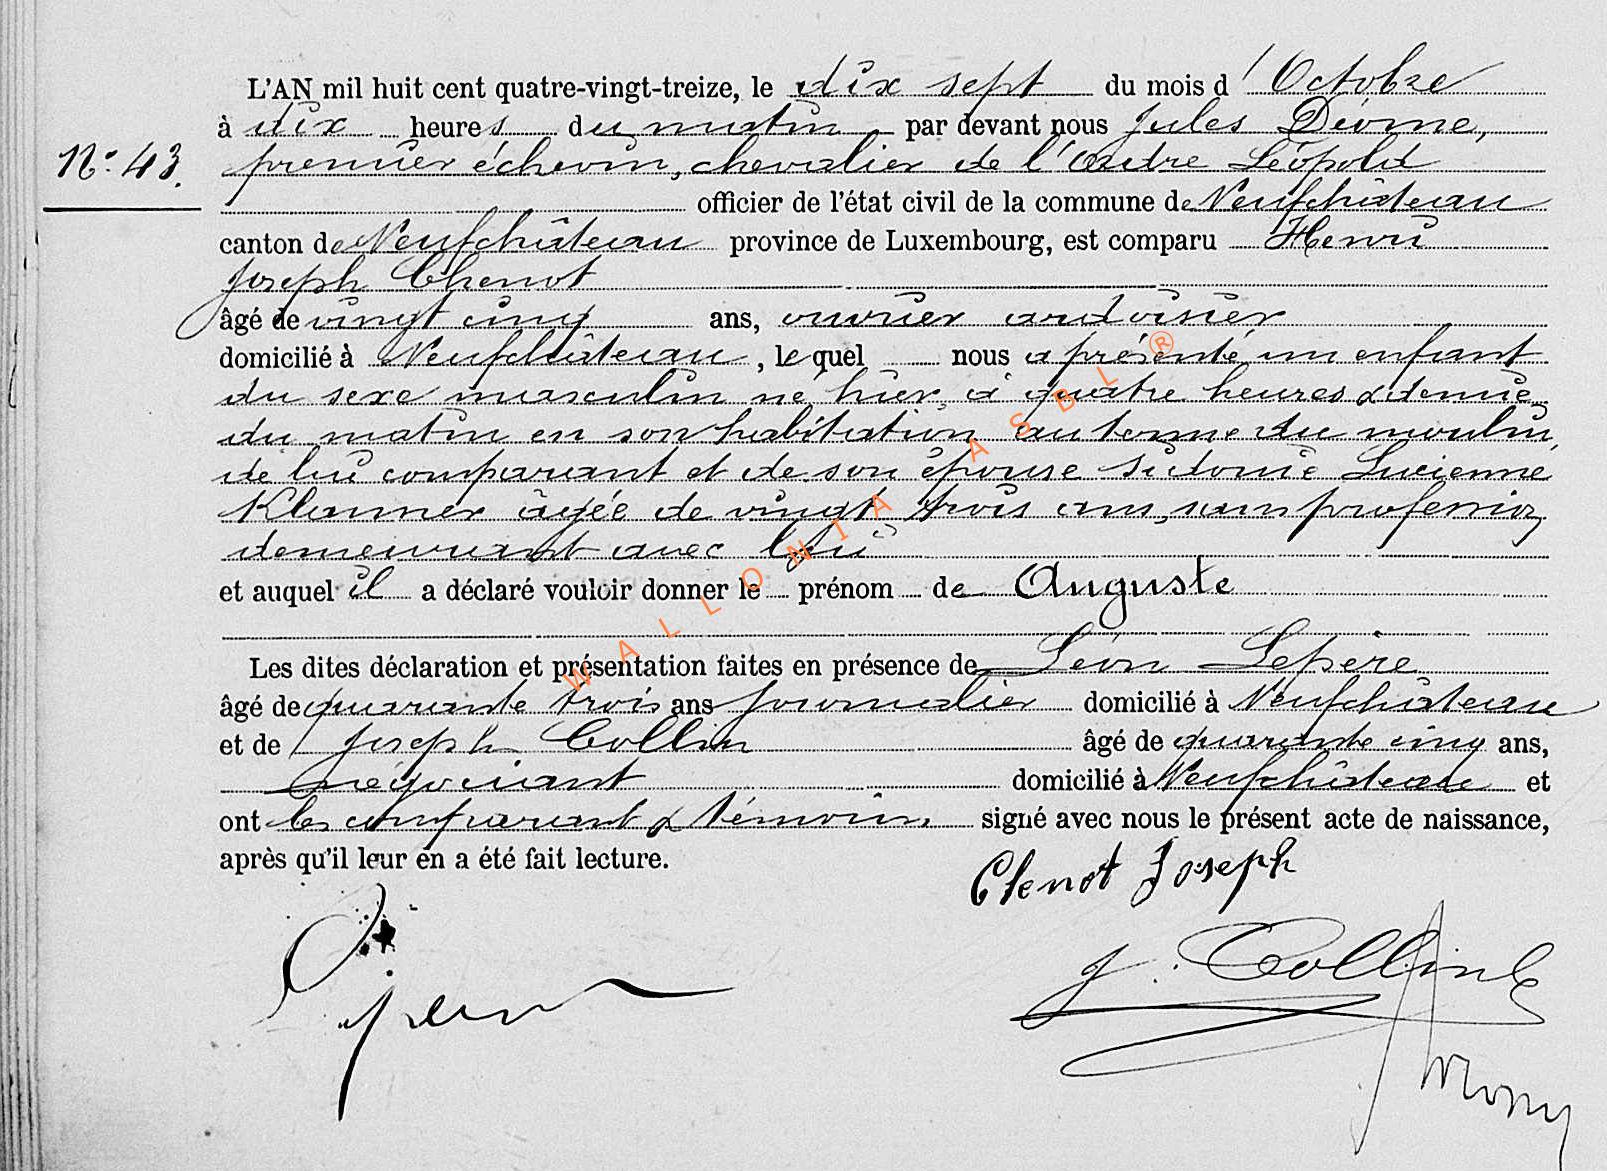 L'AN mil huit cent quatre-vingt-treize, le dix sept du mois d'Octobre
à dix heures du matin par devant nous Jules
N° 43.
premier échevin, chevalier de l'ordre Léopold
officier de l'état civil de la commune de Neufchâteau
canton de Neufchâteau province de Luxembourg, est comparu Henri
Joseph Chenot
âgé de vingt cinq ans, ouvrier ardoisier
domicilié à Neufchâteau, lequel nous a présenté un enfant
du sexe masculin né hier, à quatre heures & demie
du matin en son habitation au terme du moulin,
de lui comparant et de son épouse Sidonie Lucienne
Klanner âgée de vingt trois ans, sans profession
demeurant avec lui
et auquel il a déclaré vouloir donner le prénom de Auguste
Les dites déclaration et présentation faites en présence de Léon Lepère
âgé de quarante trois ans journalier domicilié à Neufchâteau
et de Joseph Collin âgé de quarante cinq ans,
négociant domicilié à Neufchâteau et
ont les comparant & témoins signé avec nous le présent acte de naissance,
après qu'il leur en a été fait lecture.
Chenot Joseph
J. Collin
WALLONIA ASBL ®